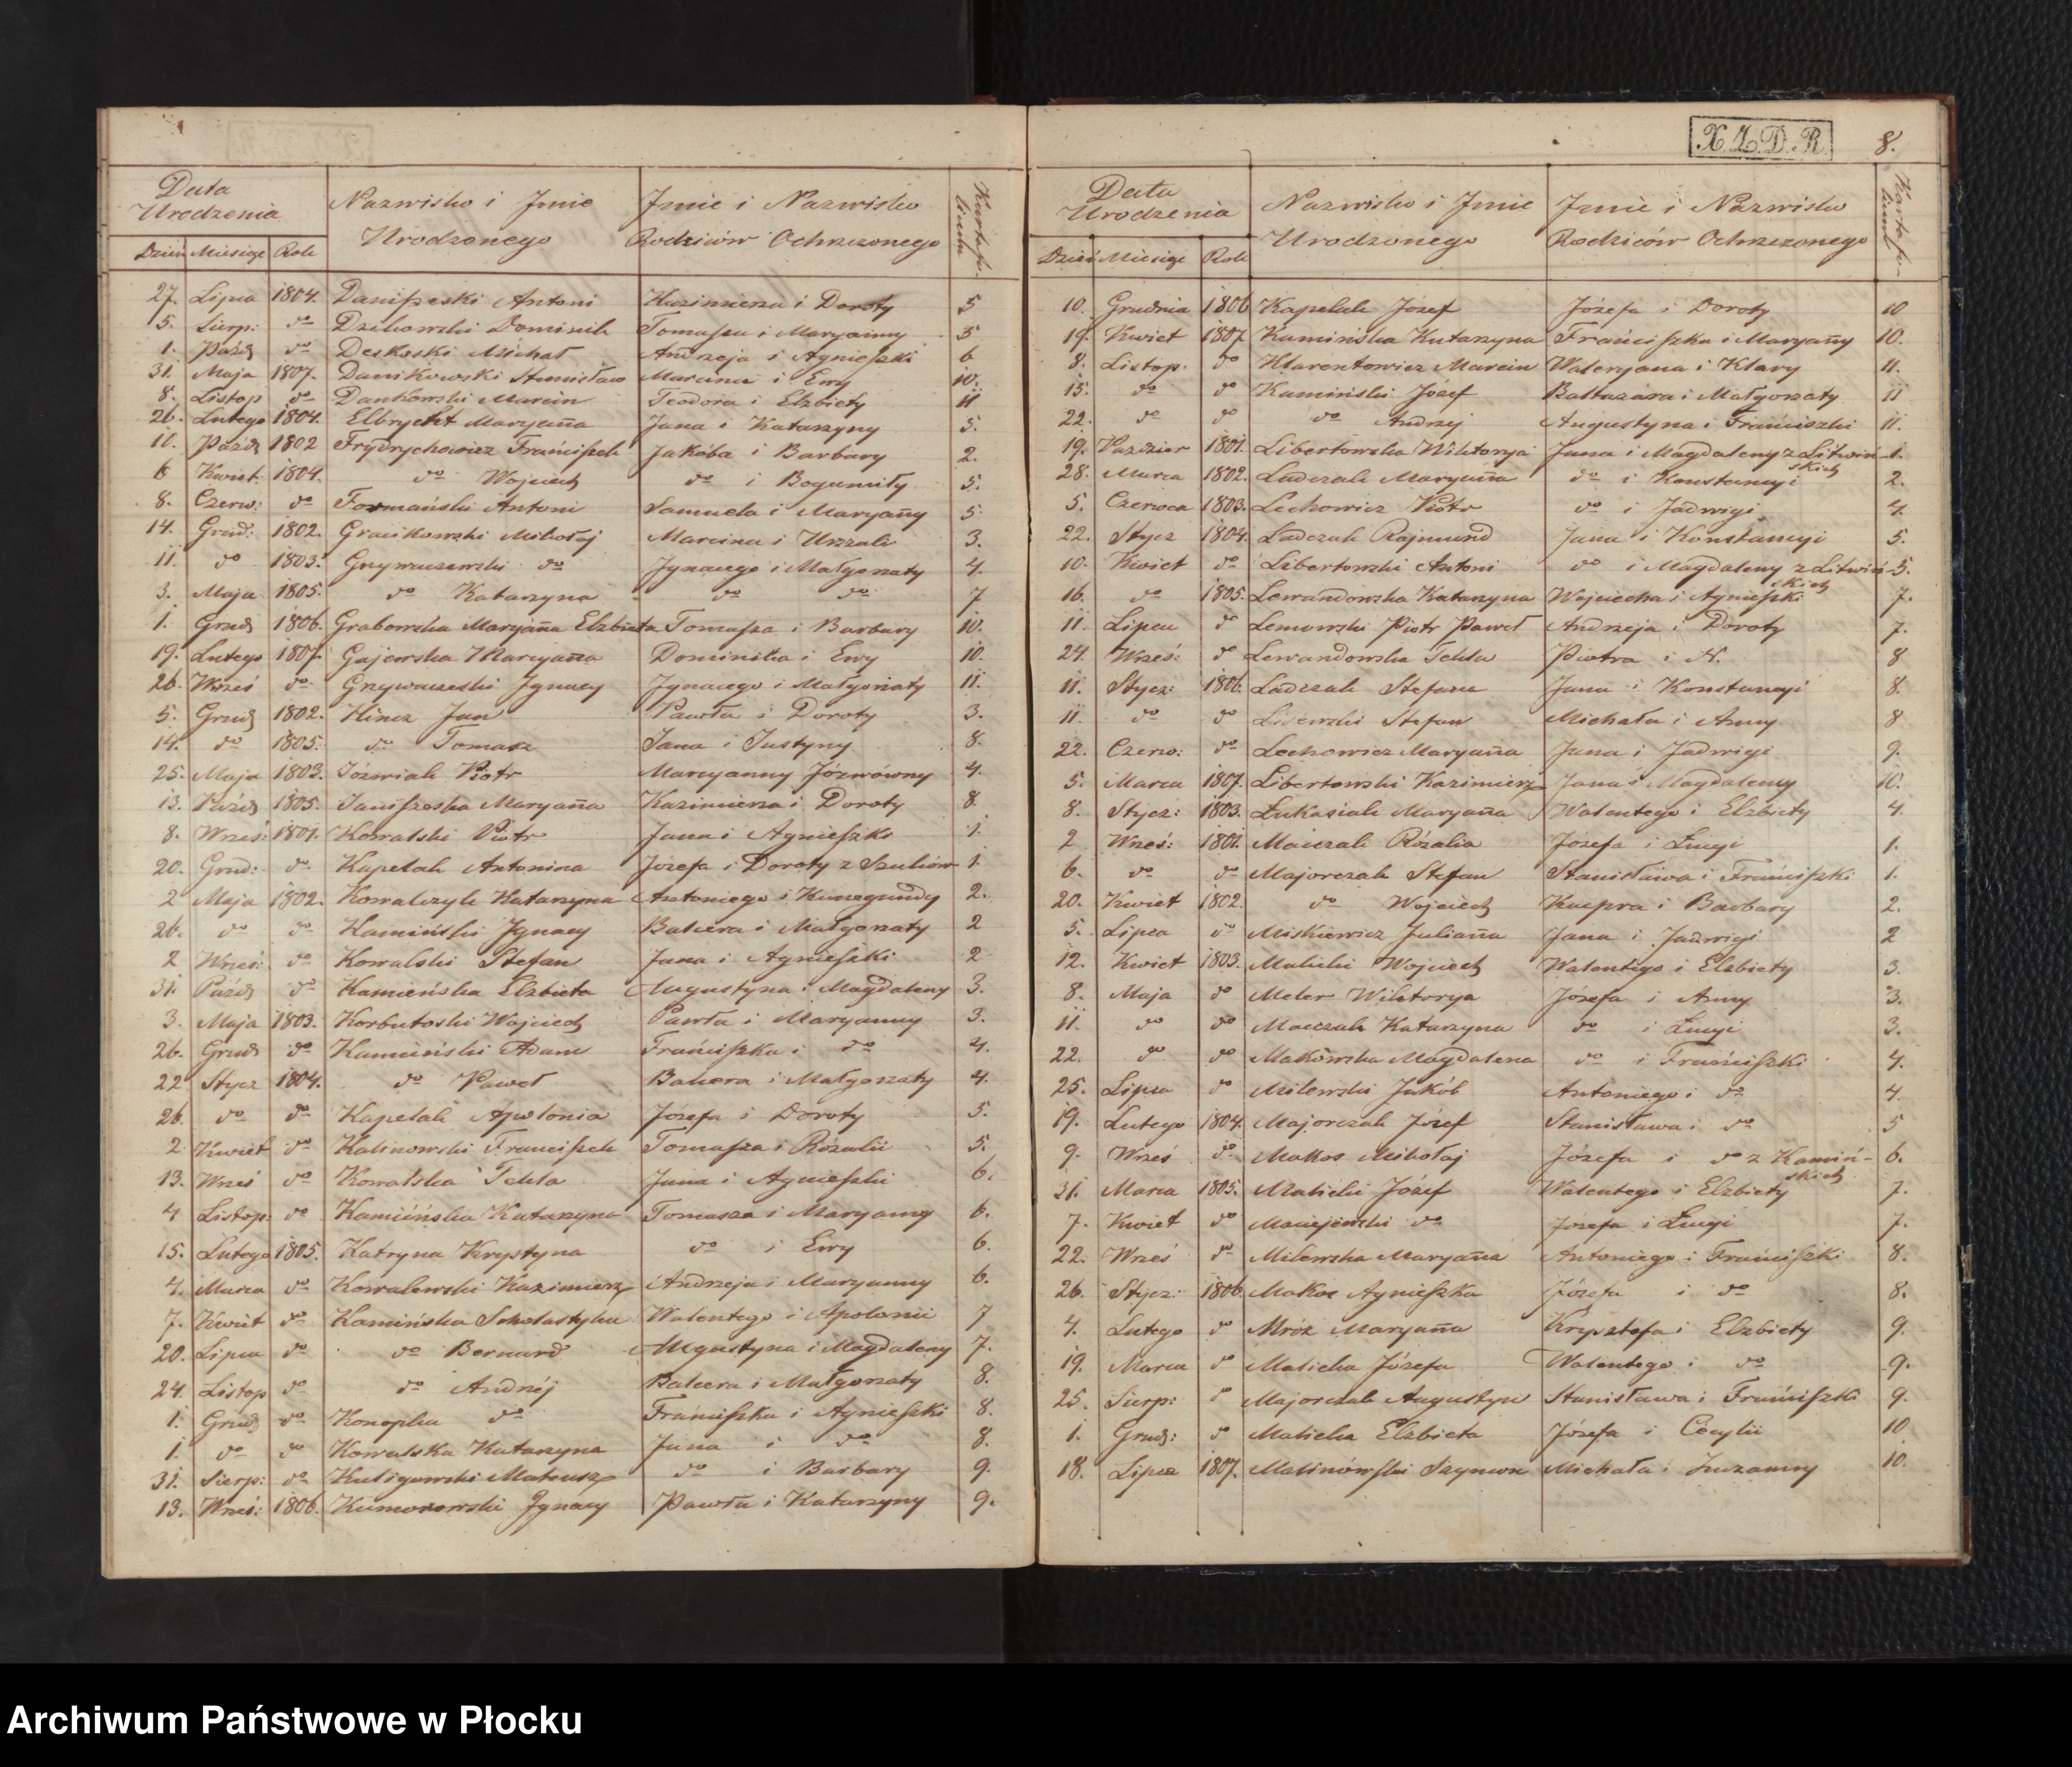 Data
Urodzenia
Nazwisko i Jmie
Urodzonego
Jmie i Nazwisko
Rodziców Ochrzczonego
Dzień Miesiąc Rok
27. Lipca 1804. Daniszeski Antoni Kazimierza i Doroty 5
5. Sierp: do Dzikowski Dominik Tomasza i Maryanny 5
1. Paźdz do Deskoski Michał Andrzeja i Agnieszki 6
31. Maja 1807. Danikowski Stanisław Marcina i Ewy 10.
8. Listop do Dankowski Marcin Teodora i Elzbiety 11
26. Lutego 1804. Elbrycht Maryanna Jana i Katarzyny 5.
10. Paźdz 1802 Frydrychowicz Franciszek Jakóba i Barbary 2.
6 Kwiet: 1804. do Wojciech do i Bogumiły 5.
8. Czerw: do Formański Antoni Samuela i Maryanny 5
14. Grud: 1802. Gracikowski Mikołaj Marcina i Urszuli 3.
11. do 1803. Grywaczewski do Jgnacego i Małgorzaty 4.
3. Maja 1805. do Katarzyna do do 7
1. Grudz 1806. Grabowska Maryanna Elzbieta Tomasza i Barbary 10.
19. Lutego 1807. Gajewska Maryanna Dominika i Ewy 10.
26. Wrześ do Grzywaczeski Jgnacy Jgnacego i Małgorzaty 11.
5. Grudz 1802. Hincz Jan Pawła i Doroty 3.
14. do 1805. do Tomasz Jana i Justyny 8.
25. Maja 1803. Józwiak Piotr Maryanny Józwówny 4.
13. Paźdz 1805. Janiszeska Maryanna Kazimierza i Doroty 8.
8. Wrześ: 1801. Kowalski Piotr Jana i Agnieszki 1.
20. Grud: do Kapelak Antonina Józefa i Doroty z Szulców 1.
2 Maja 1802. Kowalczyk Katarzyna Antoniego i Kunegundy 2.
26. do do Kamiński Jgnacy Balcera i Małgorzaty 2
2 Wrześ: do Kowalski Stefan Jana i Agnieszki 2
31. Paźdz do Kamieńska Elzbieta Augustyna i Magdaleny 3.
3. Maja 1803. Korbutoski Wojciech Pawła i Maryanny 3.
26. Grudz do Kamieński Adam Franciszka i do 4.
22 Stycz 1804. do Paweł Balcera i Małgorzaty 4.
26. do do Kapelak Apolonia Józefa i Doroty 5.
2 Kwiet do Kalinowski Franciszek Tomasza i Rózalii 5.
13. Wrześ do Kowalska Tekla Jana i Agnieszki 6.
4 Listop: do Kamińska Katarzyna Tomasza i Maryanny 6.
15. Lutego 1805. Katryna Krystyna do i Ewy 6.
4. Marca do Kowalewski Kazimierz Andrzeja i Maryanny 6.
7. Kwiet do Kamińska Scholastyka Walentego i Apolonii 7
20. Lipca do do Bernard Augustyna i Magdaleny 7.
24. Listop do do Andrzéj Balcera i Małgorzaty 8.
1. Grudz do Konopka do Franciszka i Agnieszki 8.
1. do do Kowalska Katarzyna Jana i do 8.
31. Sierp: do Kuligowski Mateusz do i Barbary 9.
13. Wrześ: 1806. Kumorowski Jgnacy Pawła i Katarzyny 9.
X.Z.D.R. 8.
Data
Urodzenia
Nazwisko i Jmie
Urodzonego
Jmie i Nazwisko
Rodziców Ochrzczonego
Dzień Miesiąc Rok
10. Grudnia 1806 Kapelak Józef Józefa i Doroty 10
19. Kwiet 1807 Kamińska Katarzyna Franciszka i Maryanny 10.
8. Listop. do Klarentowicz Marcin Waleryana i Klary 11.
15. do do Kamiński Józef Baltazara i Małgorzaty 11
22. do do do Andrzej Augustyna i Franciszki 11.
19. Paździer 1801. Libertowska Wiktorya Jana i Magdaleny z Litwiń- 1.
skich
28. Marca 1802. Ladczak Maryanna do i Konstancyi 2.
5. Czerwca 1803. Lechowicz Piotr do i Jadwigi 4.
22. Stycz 1804. Ladczak Rajmund Jana i Konstancyi 5.
10. Kwiet do Libertowski Antoni do i Magdaleny z Litwiń- 5.
skich
16. do 1805. Lewandowska Katarzyna Wojciecha i Agnieszki 7.
11. Lipca do Lemowski Piotr Paweł Andrzeja i Doroty 7.
24. Wrześ: do Lewandowska Tekla Piotra i N. 8
11. Stycz: 1806. Ladczak Stefan Jana i Konstancyi 8.
11. do do Lisewski Stefan Michała i Anny 8
22. Czerw: do Lechowicz Maryanna Jana i Jadwigi 9.
5. Marca 1807. Libertowski Kazimierz Jana i Magdaleny 10.
8. Stycz: 1803. Łukasiak Maryanna Walentego i Elzbiety 4.
2 Wrześ: 1801. Maiczak Rózalia Józefa i Łucyi 1.
6. do do Majorczak Stefan Stanisława i Franciszki 1.
20. Kwiet 1802. do Wojciech Kacpra i Barbary 2.
5. Lipca do Miskiewicz Julianna Jana i Jadwigi 2
12. Kwiet 1803. Malicki Wojciech Walentego i Elzbiety 3.
8. Maja do Meler Wiktorya Józefa i Anny 3.
11. do do Maiczak Katarzyna do i Łucyi 3.
22. do do Makowska Magdalena do i Franciszki 4.
25. Lipca do Milewski Jakób Antoniego i do 4.
19. Lutego 1804. Majorczak Józef Stanisława i do 5
9. Wrześ do Makos Mikołaj Józefa i do z Kamiń- 6.
skich
31. Marca 1805. Malicki Józef Walentego i Elzbiety 7.
7. Kwiet do Maciejewski do Józefa i Łucyi 7.
22. Wrześ do Milewska Maryanna Antoniego i Franciszki 8.
26. Stycz: 1806. Makos Agnieszka Józefa i do 8.
4. Lutego do Mróz Maryanna Krysztofa i Elzbiety 9.
19. Marca do Malicka Józefa Walentego i do 9.
25. Sierp: do Majorczak Augustyn Stanisława i Franciszki 9.
1. Grudz: do Malicka Elzbieta Józefa i Cecylii 10
18. Lipca 1807. Malinówski Szymon Michała i Zuzanny 10.
Archiwum Państwowe w Płocku